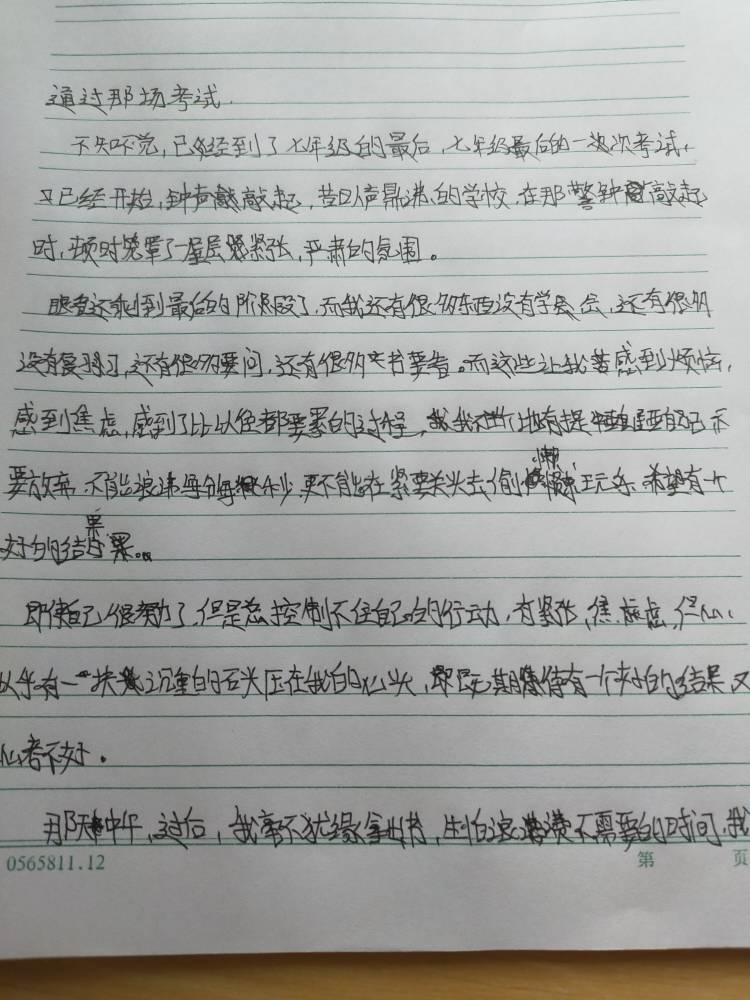 通过那场考试.
不知不觉,已经到了七年级的最后,七年级最后的一次考试,
又已经开始,钟声敲起,昔日人声鼎沸的学校,在那警钟敲起
时,顿时笼罩了一层紧张,严肃的氛围。
眼看还剩到最后的阶段了,而我还有很多东西没有学会,还有很多
没有复习,还有很多要问,还有很多书要看。而这些让我感到烦恼,
感到焦虑,感到了比以往都要累的过程,我不断地提醒自己不
要放弃,不能浪费每分每秒,更不能在紧要关头去偷懒玩乐,希望有一个
好的结果。
即使自己很努力了,但是总控制不住自己的行动,有紧张,焦虑,担心,
似乎有一块沉重的石头压在我的心头,即期待有一个好的结果又
心考不好。
那天中午,过后,我毫不犹缘拿出书,生怕浪费不需要的时间,我
0565811.12
第 页